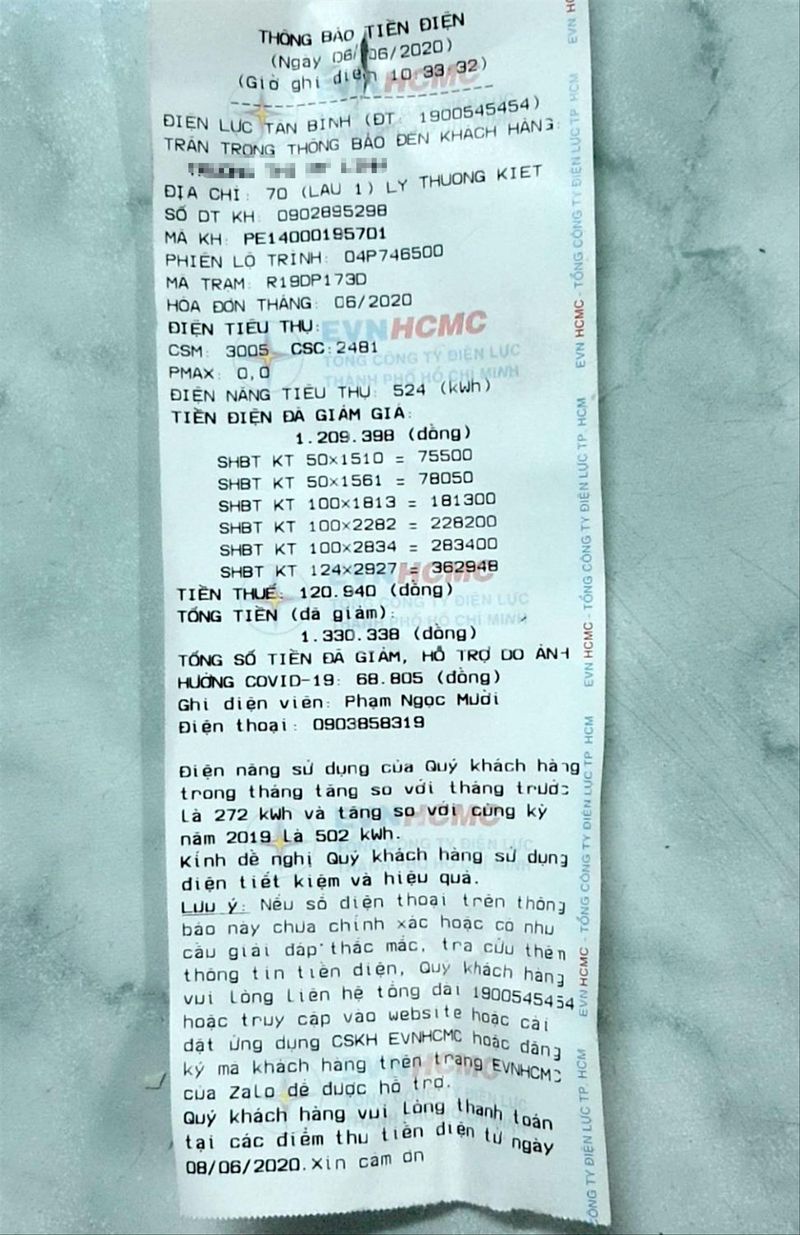 THÔNG BÁO TIỀN ĐIỆN
(Ngày 06/06/2020)
(Giờ ghi điện 10 33 32)
ĐIỆN LỰC TÂN BÌNH (ĐT: 1900545454)
TRÂN TRỌNG THÔNG BÁO ĐẾN KHÁCH HÀNG:
ĐỊA CHỈ: 70 (LAU 1) LY THUONG KIET
SỐ DT KH: 0902895298
MÃ KH: PE14000195701
PHIÊN LỘ TRÌNH: 04P746500
MÃ TRẠM: R19DP173D
HÓA ĐƠN THÁNG: 06/2020
ĐIỆN TIÊU THỤ:
CSM: 3005 CSC:2481
PMAX: 0,0
ĐIỆN NĂNG TIÊU THỤ: 524 (kWh)
TIỀN ĐIỆN ĐÃ GIẢM GIÁ:
1.209.398 (đồng)
SHBT KT 50x1510 = 75500
SHBT KT 50x1561 = 78050
SHBT KT 100x1813 = 181300
SHBT KT 100x2282 = 228200
SHBT KT 100x2834 = 283400
SHBT KT 124x2927 = 362948
TIỀN THUẾ: 120.940 (đồng)
TỔNG TIỀN (đã giảm):
1.330.338 (đồng)
TỔNG SỐ TIỀN ĐÃ GIẢM, HỖ TRỢ DO ẢNH
HƯỞNG COVID-19: 68.805 (đồng)
Ghi điện viên: Phạm Ngọc Mười
Điện thoại: 0903858319
Điện năng sử dụng của Quý khách hàng
trong tháng tăng so với tháng trước
là 272 kWh và tăng so với cùng kỳ
năm 2019 là 502 kWh.
Kính đề nghị Quý khách hàng sử dụng
điện tiết kiệm và hiệu quả.
Lưu ý: Nếu số điện thoại trên thông
báo này chưa chính xác hoặc có nhu
cầu giải đáp thắc mắc, tra cứu thêm
thông tin tiền điện, Quý khách hàng
vui lòng liên hệ tổng đài 1900545454
hoặc truy cập vào website hoặc cài
đặt ứng dụng CSKH EVNHCMC hoặc đăng
ký mã khách hàng trên trang EVNHCMC
của Zalo để được hỗ trợ.
Quý khách hàng vui lòng thanh toán
tại các điểm thu tiền điện từ ngày
08/06/2020.Xin cám ơn
EVNHCMC
TỔNG CÔNG TY ĐIỆN LỰC
THÀNH PHỐ HỒ CHÍ MINH
EVN HCMC - TỔNG CÔNG TY ĐIỆN LỰC TP. HCM